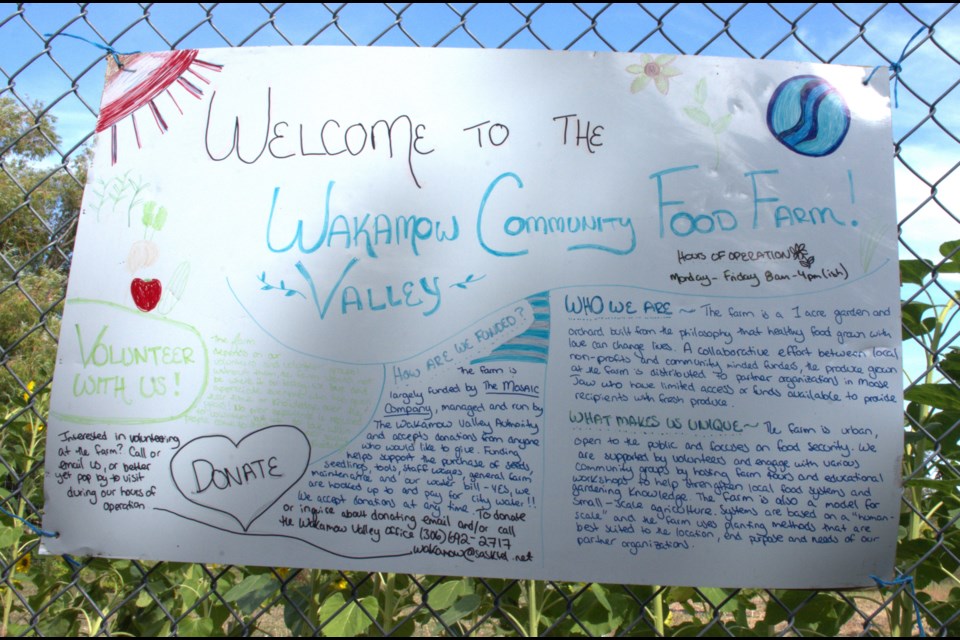 WELCOME TO THE
WAKAMOW COMMUNITY FOOD FARM!
VALLEY
HOURS OF OPERATION
Monday - Friday 8am - 4pm(ish)
VOLUNTEER
WITH US!
The farm
depends on
Interested in volunteering
at the farm? Call or
email us, or better
yet pop by to visit
during our hours of
operation
DONATE
HOW ARE WE FUNDED?
The farm is
largely funded by The Mosaic
Company, managed and run by
The Wakamow Valley Authority
and accepts donations from anyone
who would like to give. Funding
helps support the purchase of seeds,
seedlings, tools, staff wages, general farm
maintenance and our water bill - YES, we
are hooked up to and pay for city water!!
We accept donations at any time. To donate
or inquire about donating email and/or call
the Wakamow Valley Office (306) 692-2717
wakamow@sasktel.net
WHO WE ARE ~ The farm is a 1 acre garden and
orchard built from the philosophy that healthy food grown with
love can change lives. A collaborative effort between local
non-profits and community minded funders, the produce grown
at the farm is distributed to partner organizations in Moose
Jaw who have limited access or funds available to provide
recipients with fresh produce.
WHAT MAKES US UNIQUE ~ The farm is urban,
open to the public and focuses on food security. We
are supported by volunteers and engage with various
community groups by hosting farm tours and educational
workshops to help strengthen local food systems and
gardening knowledge. The farm is also a model for
small-scale agriculture. Systems are based on a "human-
scale" and the farm uses planting methods that are
best suited to the location, end purpose and needs of our
partner organizations.